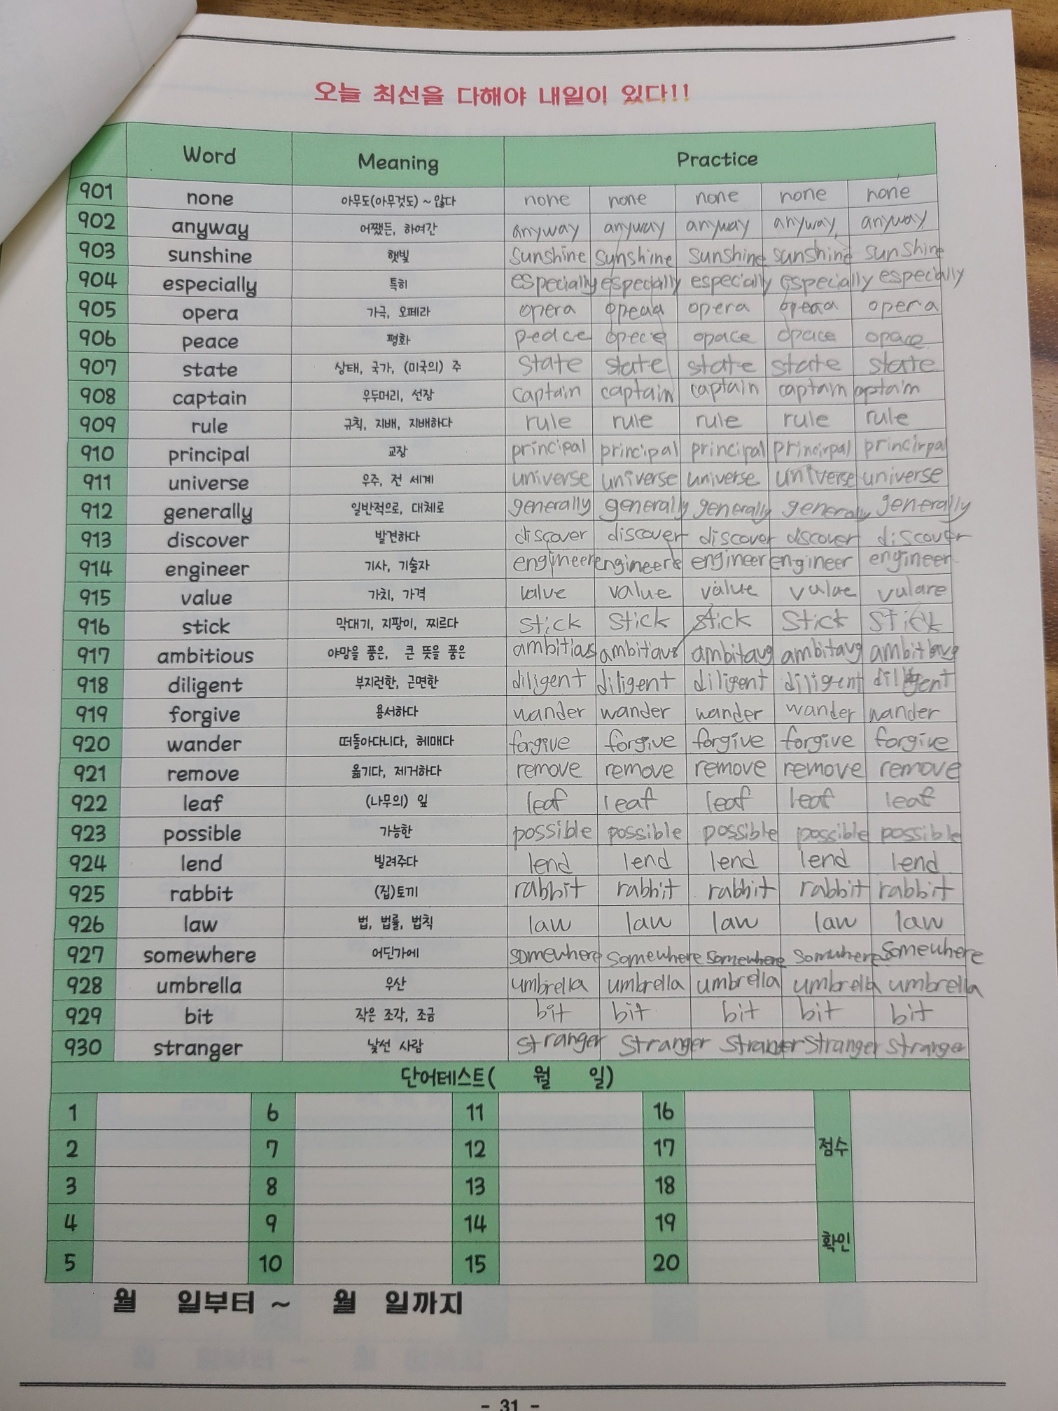 오늘 최선을 다해야 내일이 있다!!
Word Meaning Practice
901 none 아무도(아무것도) ~ 않다 none none none none none
902 anyway 어쨌든, 하여간 anyway anyway anyway anyway anyway
903 sunshine 햇빛 sunshine sunshine sunshine sunshine sunshine
904 especially 특히 especially especially especially especially especially
905 opera 가극, 오페라 opera opeaa opera opeaa opera
906 peace 평화 peace opece opace opace opace
907 state 상태, 국가, (미국의) 주 state state state state state
908 captain 우두머리, 선장 captain captain captain captain aptain
909 rule 규칙, 지배, 지배하다 rule rule rule rule rule
910 principal 교장 principal principal principal princirpal princirpal
911 universe 우주, 전 세계 universe universe universe universe universe
912 generally 일반적으로, 대체로 generally generally generally generaly generally
913 discover 발견하다 discover discover discover dscover discover
914 engineer 기사, 기술자 engineer engineer engineer engineer engineer
915 value 가치, 가격 value value value vulae vulare
916 stick 막대기, 지팡이, 찌르다 stick stick stick stick stick
917 ambitious 야망을 품은, 큰 뜻을 품은 ambitias ambitaus ambitaug ambitavg
918 diligent 부지런한, 근면한 diligent diligent diligent diligent diligent
919 forgive 용서하다 wander wander wander wander wander
920 wander 떠돌아다니다, 헤매다 forgive forgive forgive forgive forgive
921 remove 옮기다, 제거하다 remove remove remove remove remove
922 leaf (나무의) 잎 leaf leaf leaf leaf leaf
923 possible 가능한 possible possible possible possible possible
924 lend 빌려주다 lend lend lend lend lend
925 rabbit (집)토끼 rabbit rabbit rabbit rabbit rabbit
926 law 법, 법률, 법칙 law law law law law
927 somewhere 어딘가에 somewhere somewhere somewhere somwhere somewhere
928 umbrella 우산 umbrella umbrella umbrella umbrella umbrella
929 bit 작은 조각, 조금 bit bit bit bit bit
930 stranger 낯선 사람 stranger stranger stranger stranger stranger
단어테스트( 월 일)
1 6 11 16
2 7 12 17 점수
3 8 13 18
4 9 14 19
확인
5 10 15 20
월 일부터 ~ 월 일까지
- 31 -